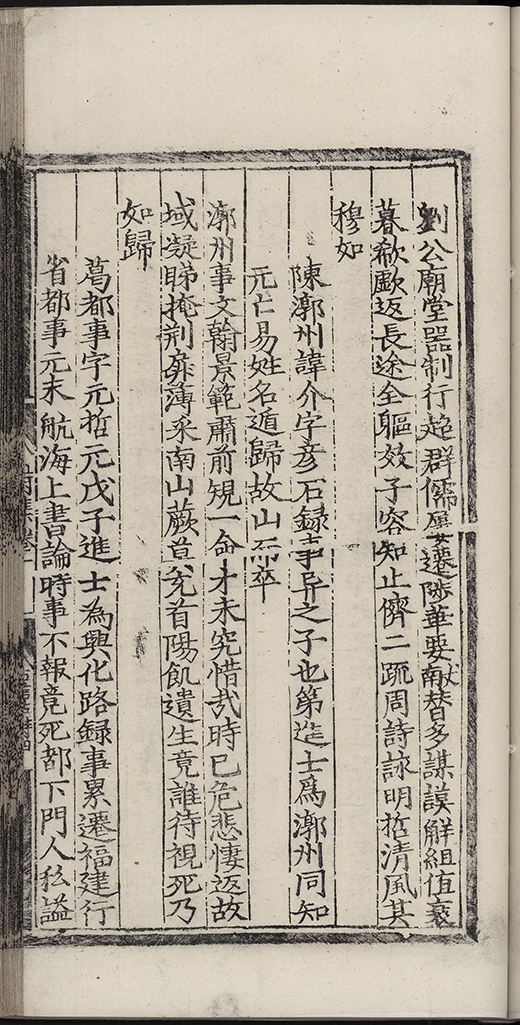 劉公廟堂器制行超群儒屢遷陟華要献替多謀謨解組值衰
暮欷歔返長途全軀效子容知止儕二疏周詩詠明哲清風其
穆如
陳漷州諱介字彦石録事异之子也第進士爲漷州同知
元亡易姓名遁歸故山而卒
漷州事文翰景範肅前規一命才未究惜哉時已危悲悽返故
域凝睇掩荆扉薄采南山蕨首充首陽飢遺生竟誰待視死乃
如歸
葛都事字元哲元戊子進士為興化路録事累遷福建行
省都事元末航海上書論時事不報竟死都下門人私謚